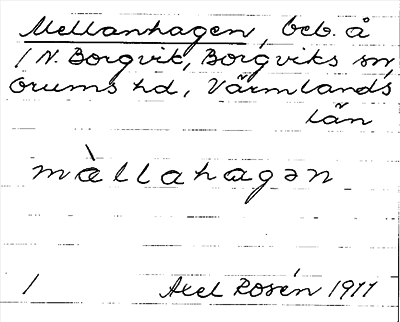 Mellanhagen, beb. å
1 N. Borgvik, Borgviks sn,
Grums hd, Värmlands
län
màllahagən
1 Axel Rosén 1911